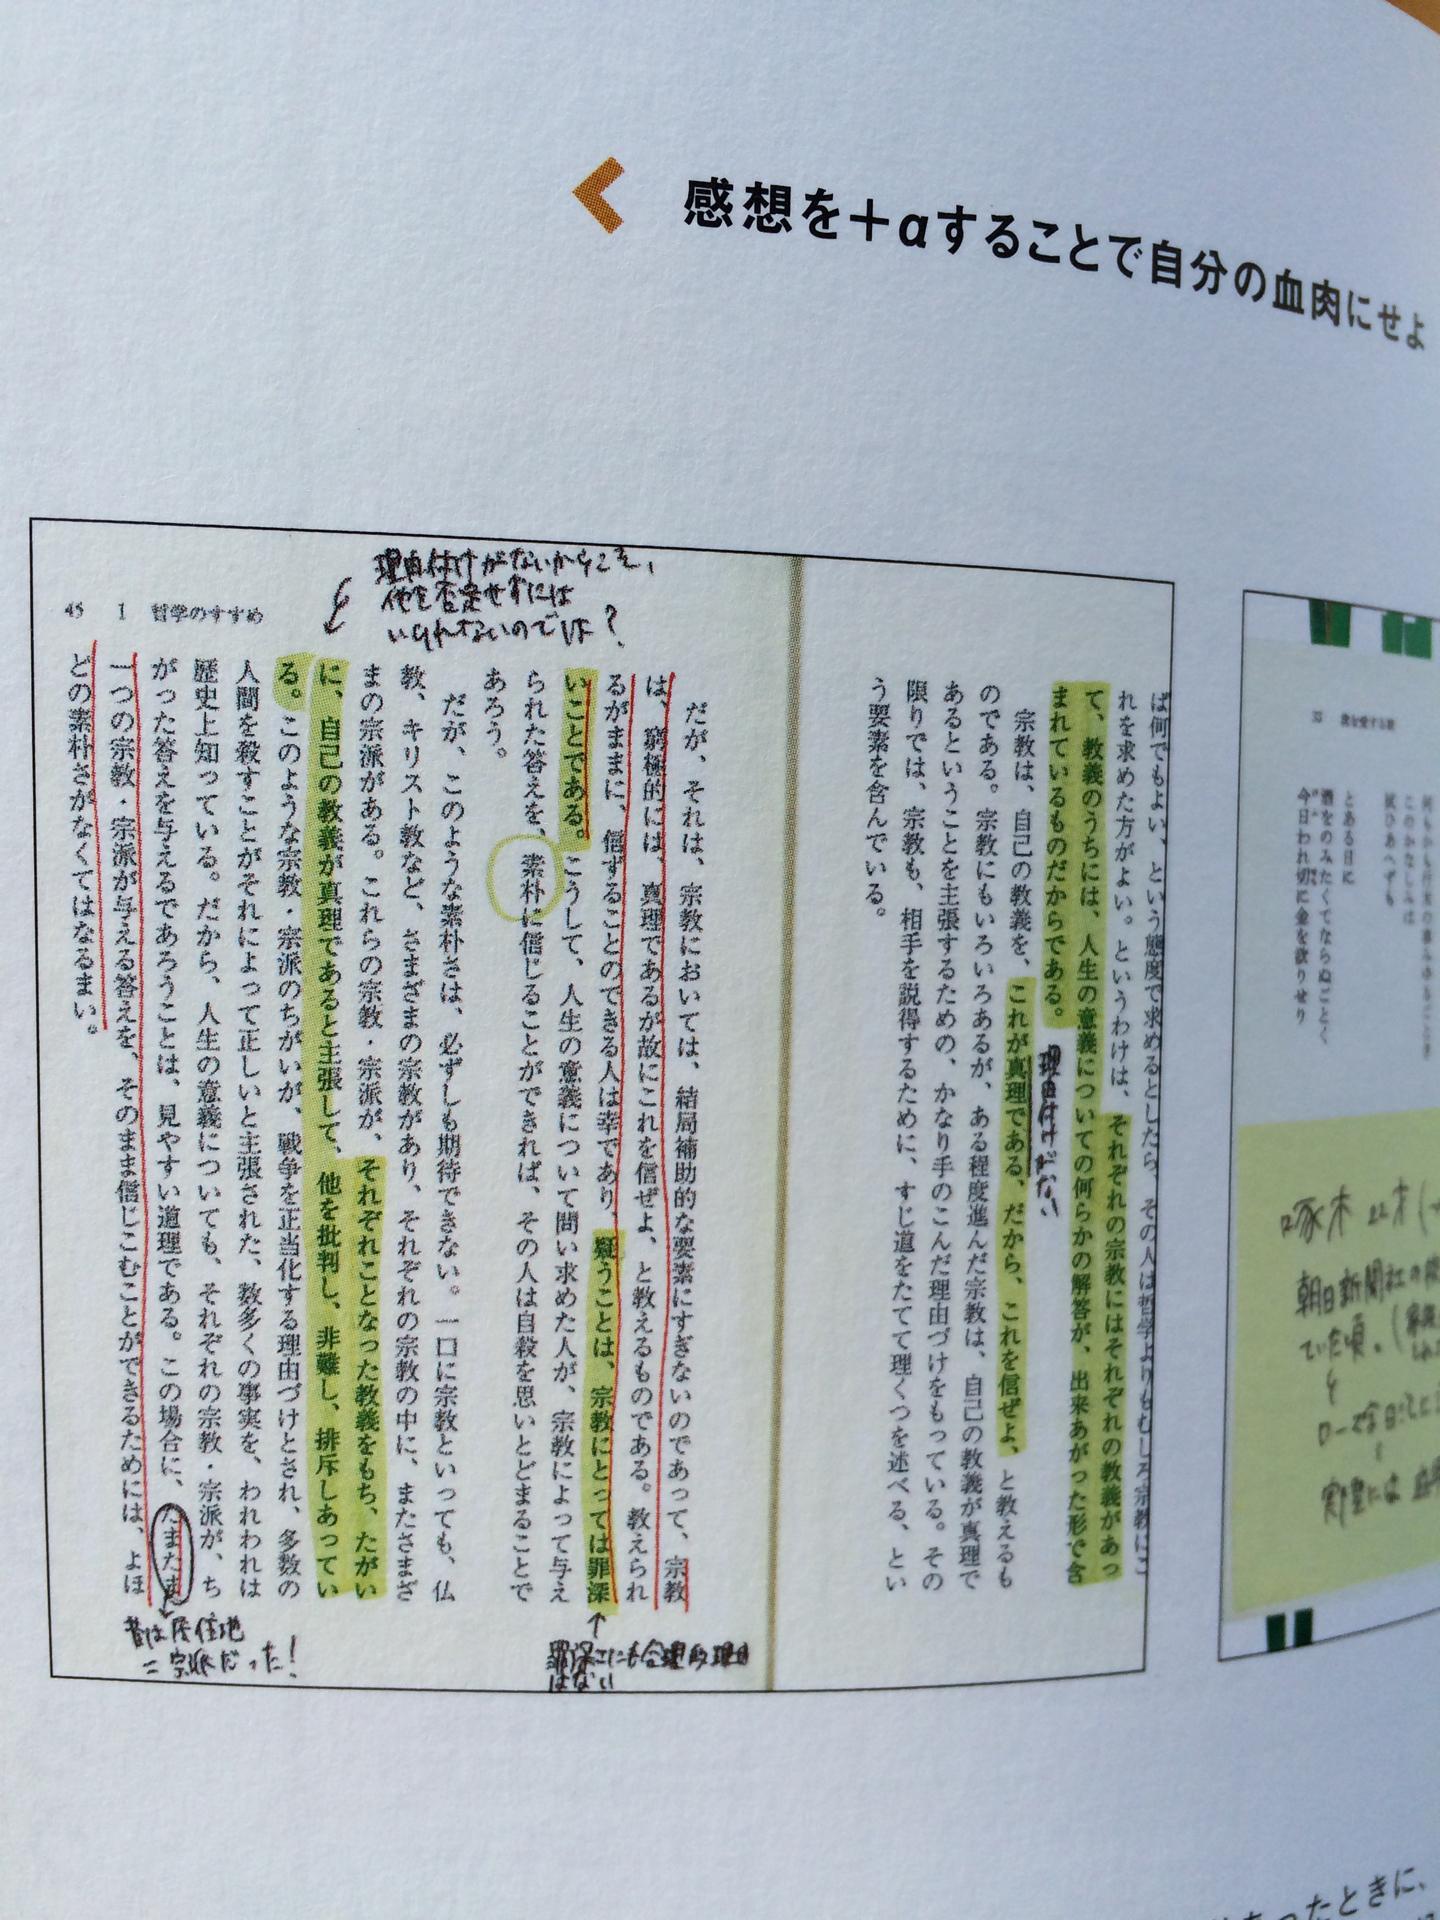 感想を+αすることで自分の血肉にせよ
ば何でもよい、という態度で求めるとしたら、その人は哲学よりもむしろ宗教にこ
れを求めた方がよい。というわけは、それぞれの宗教にはそれぞれの教義があっ
て、教義のうちには、人生の意義についての何らかの解答が、出来あがった形で含
まれているものだからである。
理由付けがない
宗教は、自己の教義を、これが真理である、だから、これを信ぜよ、と教えるも
のである。宗教にもいろいろあるが、ある程度進んだ宗教は、自己の教義が真理で
あるということを主張するための、かなり手のこんだ理由づけをもっている。その
限りでは、宗教も、相手を説得するために、すじ道をたてて理くつを述べる、とい
う要素を含んでいる。
だが、それは、宗教においては、結局補助的な要素にすぎないのであって、宗教
は、窮極的には、真理であるが故にこれを信ぜよ、と教えるものである。教えられ
るがままに、信ずることのできる人は幸であり、疑うことは、宗教にとっては罪深
いことである。こうして、人生の意義について問い求めた人が、宗教によって与え
られた答えを、素朴に信じることができれば、その人は自殺を思いとどまることで
あろう。
だが、このような素朴さは、必ずしも期待できない。一口に宗教といっても、仏
教、キリスト教など、さまざまの宗教があり、それぞれの宗教の中に、またさまざ
まの宗派がある。これらの宗教・宗派が、それぞれことなった教義をもち、たがい
に、自己の教義が真理であると主張して、他を批判し、非難し、排斥しあってい
る。このような宗教・宗派のちがいが、戦争を正当化する理由づけとされ、多数の
人間を殺すことがそれによって正しいと主張された、数多くの事実を、われわれは
歴史上知っている。だから、人生の意義についても、それぞれの宗教・宗派が、ち
がった答えを与えるであろうことは、見やすい道理である。この場合に、たまたま
一つの宗教・宗派が与える答えを、そのまま信じこむことができるためには、よほ
どの素朴さがなくてはなるまい。
45 I 哲学のすすめ
理由付けがないからこそ、
他を否定せずには
いられないのでは?
罪深さにも合理的理由
はない
昔は居住地
=宗派だった!
33 我を愛する歌
とある日に
酒をのみたくてならぬごとく
今日われ切に金を欲りせり
啄木
朝日新聞社の
ていた頃。
実際には
たときに、